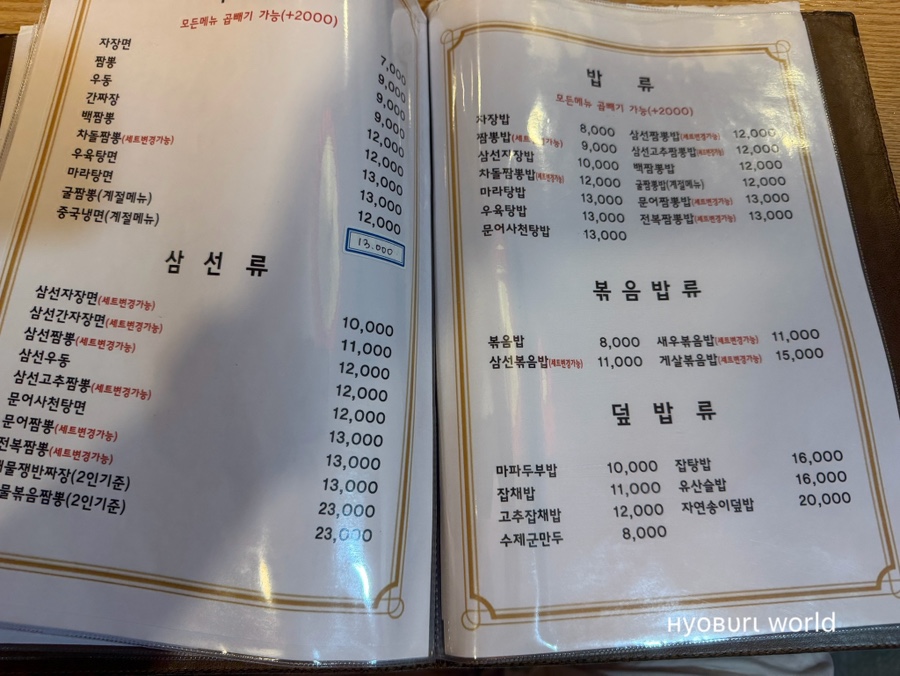 모든메뉴 곱빼기 가능(+2000)
자장면 7,000
짬뽕 9,000
우동 9,000
간짜장 9,000
백짬뽕 12,000
차돌짬뽕(세트변경가능) 12,000
우육탕면 13,000
마라탕면 13,000
굴짬뽕(계절메뉴) 12,000
중국냉면(계절메뉴) 13.000
삼선류
삼선자장면(세트변경가능) 10,000
삼선간자장면(세트변경가능) 11,000
삼선짬뽕(세트변경가능) 12,000
삼선우동 12,000
삼선고추짬뽕(세트변경가능) 12,000
문어사천탕면 13,000
문어짬뽕(세트변경가능) 13,000
전복짬뽕(세트변경가능) 13,000
물쟁반짜장(2인기준) 23,000
물볶음짬뽕(2인기준) 23,000
밥 류
모든메뉴 곱빼기 가능(+2000)
자장밥 8,000 삼선짬뽕밥(세트변경가능) 12,000
짬뽕밥(세트변경가능) 9,000 삼선고추짬뽕밥(세트변경가능) 12,000
삼선자장밥 10,000 백짬뽕밥 12,000
차돌짬뽕밥(세트변경가능) 12,000 굴짬뽕밥(계절메뉴) 12,000
마라탕밥 13,000 문어짬뽕밥(세트변경가능) 13,000
우육탕밥 13,000 전복짬뽕밥(세트변경가능) 13,000
문어사천탕밥 13,000
볶음밥류
볶음밥 8,000 새우볶음밥(세트변경가능) 11,000
삼선볶음밥(세트변경가능) 11,000 게살볶음밥(세트변경가능) 15,000
덮밥류
마파두부밥 10,000 잡탕밥 16,000
잡채밥 11,000 유산슬밥 16,000
고추잡채밥 12,000 자연송이덮밥 20,000
수제군만두 8,000
HYOBURI WORLD